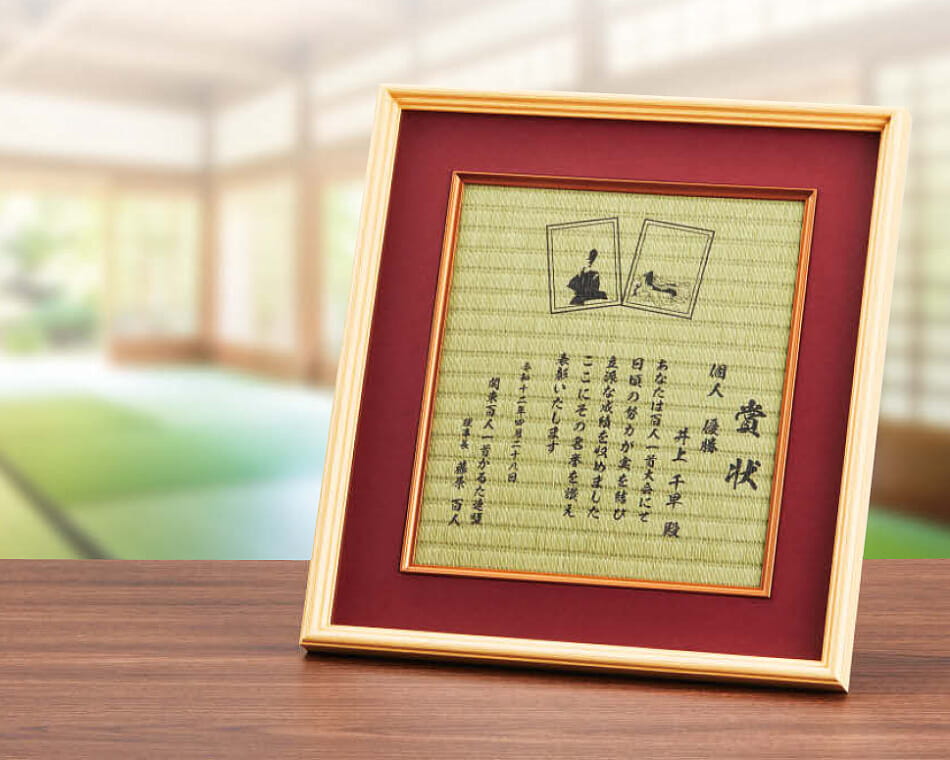 賞状
個人 優勝
井上 千早 殿
あなたは百人一首大会にて
日頃の努力が実を結び
立派な成績を収めました
ここにその名誉を讃え
表彰いたします
令和十二年四月二十八日
関東百人一首かるた連盟
理事長 藤原 百人